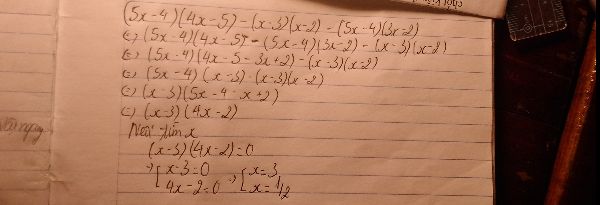 (5x-4)(4x-5)-(x-3)(x-2)-(5x-4)(3x-2)
(=) (5x-4)(4x-5)-(5x-4)(3x-2)-(x-3)(x-2)
(=) (5x-4)(4x-5-3x+2)-(x-3)(x-2)
(=) (5x-4)(x-3)-(x-3)(x-2)
(=) (x-3)(5x-4-x+2)
(=) (x-3)(4x-2)
tìm x
(x-3)(4x-2)=0
=> [x-3=0 => [x=3
[4x-2=0 [x=1/2